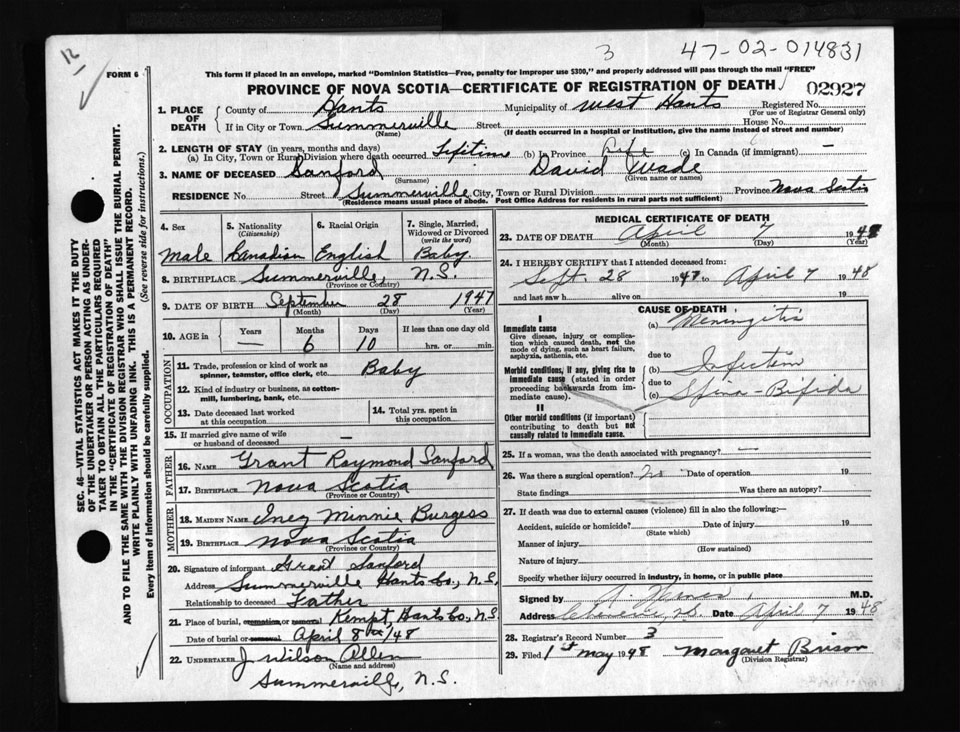 12
3 47-02-014831
FORM 6
This form if placed in an envelope, marked "Dominion Statistics—Free, penalty for improper use $300," and properly addressed will pass through the mail "FREE"
PROVINCE OF NOVA SCOTIA—CERTIFICATE OF REGISTRATION OF DEATH 02927
1. PLACE OF DEATH County of Hants Municipality of West Hants Registered No.
(For use of Registrar General only)
If in City or Town Summerville Street House No.
(Name) (If death occurred in a hospital or institution, give the name instead of street and number)
2. LENGTH OF STAY (in years, months and days)
(a) In City, Town or Rural Division where death occurred Lifetime (b) In Province Life (c) In Canada (if immigrant) —
3. NAME OF DECEASED Sanford David Wade
(Surname) (Given name or names)
RESIDENCE No. Street Summerville City, Town or Rural Division Province Nova Scotia
(Residence means usual place of abode. Post Office Address for residents in rural parts not sufficient)
4. Sex 5. Nationality (Citizenship) 6. Racial Origin 7. Single, Married, Widowed or Divorced (write the word)
Male Canadian English Baby
8. BIRTHPLACE Summerville, N.S.
(Province or Country)
9. DATE OF BIRTH September 28 1947
(Month) (Day) (Year)
10. AGE in Years Months Days If less than one day old
— 6 10 hrs. or min.
OCCUPATION
11. Trade, profession or kind of work as spinner, teamster, office clerk, etc. Baby
12. Kind of industry or business, as cotton-mill, lumbering, bank, etc.
13. Date deceased last worked at this occupation 14. Total yrs. spent in this occupation
15. If married give name of wife or husband of deceased —
FATHER
16. NAME Grant Raymond Sanford
17. BIRTHPLACE Nova Scotia
(Province or Country)
MOTHER
18. MAIDEN NAME Inez Minnie Burgess
19. BIRTHPLACE Nova Scotia
(Province or Country)
20. Signature of informant Grant Sanford
Address Summerville Hants Co., N.S.
Relationship to deceased Father
21. Place of burial, cremation or removal Kempt, Hants Co., N.S.
Date of burial or removal April 8 /48
22. UNDERTAKER J Wilson Allen
(Name and address)
Summerville, N.S.
MEDICAL CERTIFICATE OF DEATH
23. DATE OF DEATH April 7 1948
(Month) (Day) (Year)
24. I HEREBY CERTIFY that I attended deceased from
Sept. 28 1947 to April 7 1948
and last saw h alive on 19
CAUSE OF DEATH
I
Immediate cause
Give disease, injury or complication which caused death, not the mode of dying, such as heart failure, asphyxia, asthenia, etc.
(a) Meningitis
due to
Morbid conditions, if any, giving rise to immediate cause (stated in order proceeding backwards from immediate cause).
(b) Infection
due to
(c) Spina-Bifida
II
Other morbid conditions (if important) contributing to death but not causally related to immediate cause.
25. If a woman, was the death associated with pregnancy? —
26. Was there a surgical operation? no Date of operation 19
State findings Was there an autopsy?
27. If death was due to external causes (violence) fill in also the following:—
Accident, suicide or homicide? Date of injury 19
(State which)
Manner of injury
(How sustained)
Nature of injury
Specify whether injury occurred in industry, in home, or in public place
Signed by M.D.
Address N.S. Date April 7 1948
28. Registrar's Record Number 3
29. Filed 1st May 1948 Margaret Brison
(Division Registrar)
SEC. 46—VITAL STATISTICS ACT MAKES IT THE DUTY
OF THE UNDERTAKER OR PERSON ACTING AS UNDER-
TAKER TO OBTAIN ALL THE PARTICULARS REQUIRED
IN THE "CERTIFICATE OF REGISTRATION OF DEATH"
AND TO FILE THE SAME WITH THE DIVISION REGISTRAR WHO SHALL ISSUE THE BURIAL PERMIT.
WRITE PLAINLY WITH UNFADING INK. THIS IS A PERMANENT RECORD.
Every item of information should be carefully supplied. (See reverse side for instructions.)